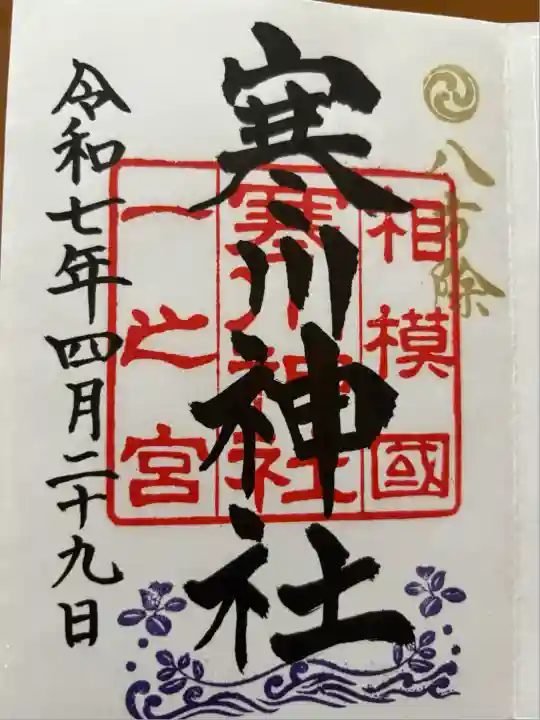 八方除
相模國
寒川神社
一之宮
寒川神社
令和七年四月二十九日